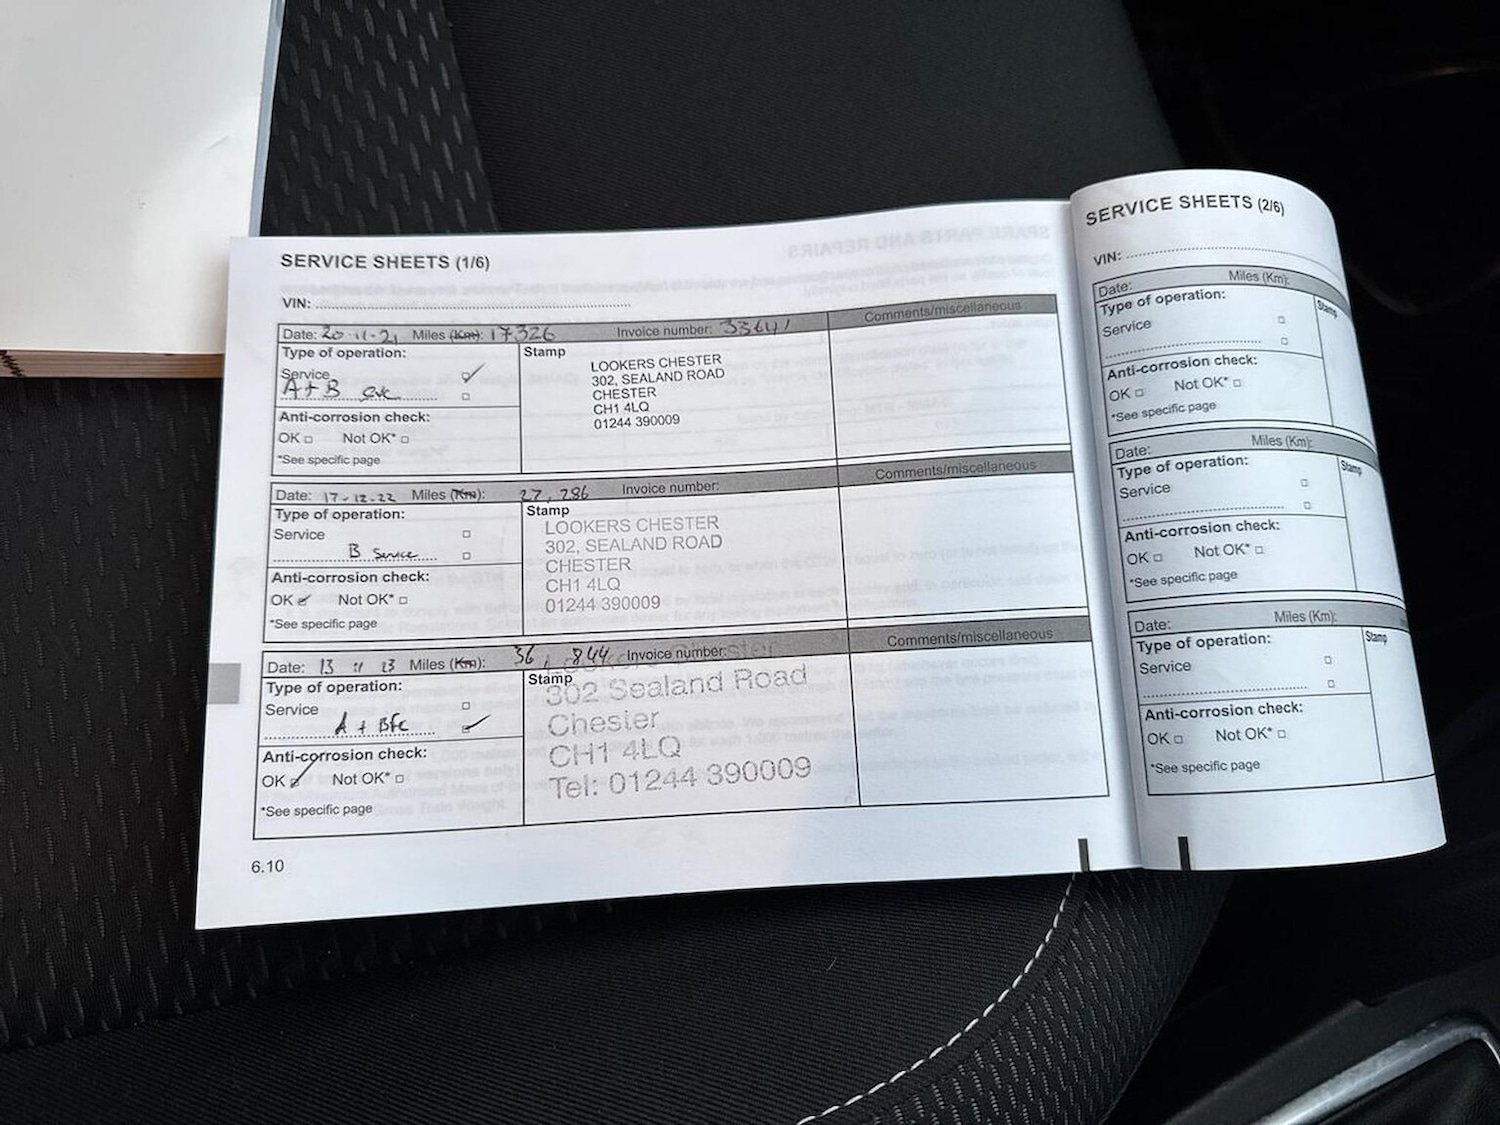 SERVICE SHEETS (1/6)
VIN:
Date: 20-11-21 Miles (Km): 17326 Invoice number: 33641
Comments/miscellaneous
Type of operation:
Service
A+B
Anti-corrosion check:
OK Not OK*
*See specific page
Stamp
LOOKERS CHESTER
302, SEALAND ROAD
CHESTER
CH1 4LQ
01244 390009
Date: 17-12-22 Miles (Km): 27,286 Invoice number:
Comments/miscellaneous
Type of operation:
Service
B Service
Anti-corrosion check:
OK Not OK*
*See specific page
Stamp
LOOKERS CHESTER
302, SEALAND ROAD
CHESTER
CH1 4LQ
01244 390009
Date: 13 11 23 Miles (Km): 36,844 Invoice number:
Comments/miscellaneous
Type of operation:
Service
A + B
Anti-corrosion check:
OK Not OK*
*See specific page
Stamp
302 Sealand Road
Chester
CH1 4LQ
Tel: 01244 390009
6.10
SERVICE SHEETS (2/6)
VIN:
Date: Miles (Km):
Type of operation:
Service
Anti-corrosion check:
OK Not OK*
*See specific page
Stamp
Date: Miles (Km):
Type of operation:
Service
Anti-corrosion check:
OK Not OK*
*See specific page
Stamp
Date: Miles (Km):
Type of operation:
Service
Anti-corrosion check:
OK Not OK*
*See specific page
Stamp